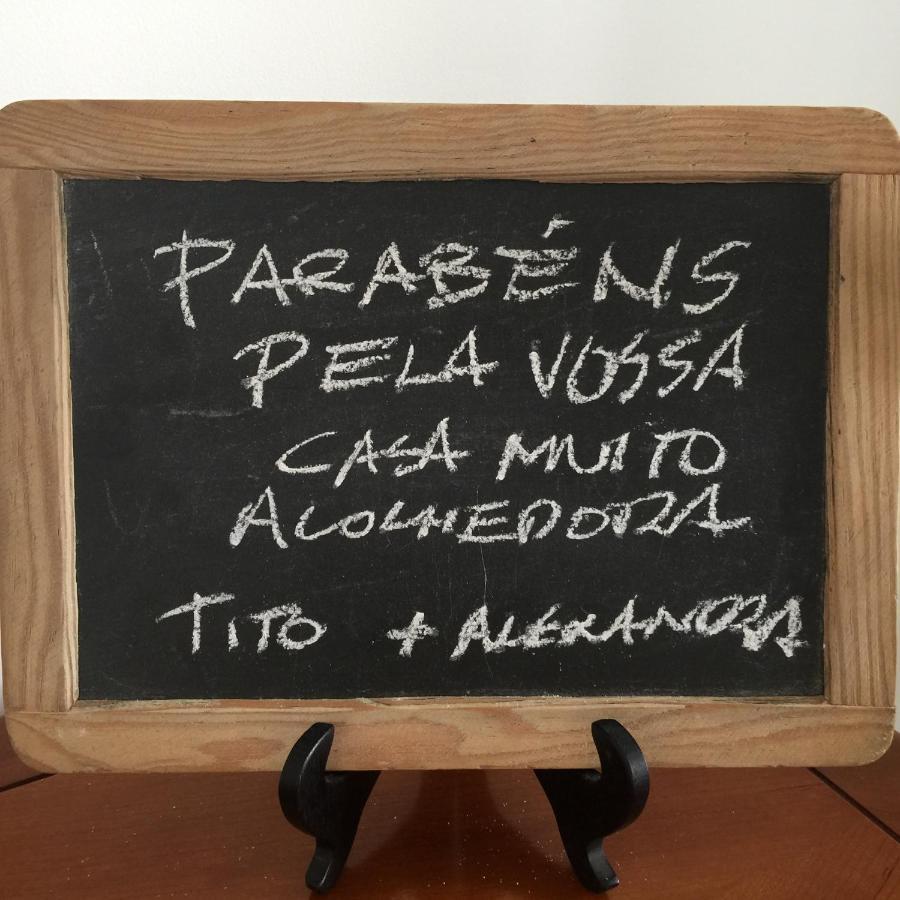 PARABÉNS
PELA VOSSA
CASA MUITO
ACOLHEDORA
TITO + ALEXANDRA